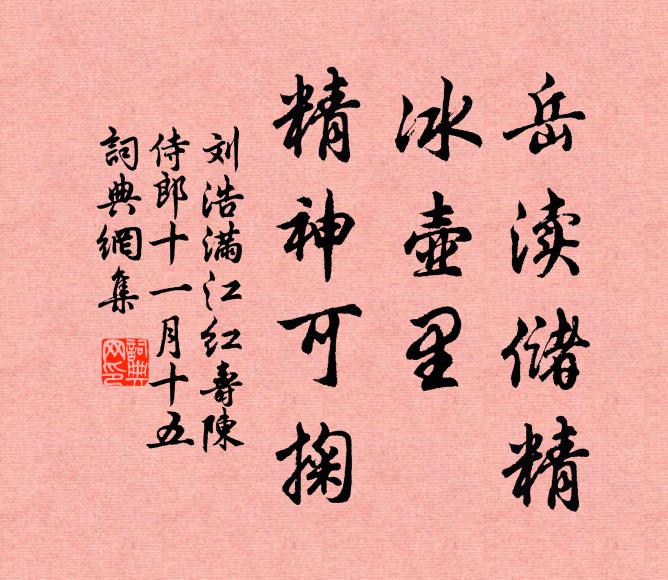 岳渎储精
冰壶里
精神可掬
刘浩满江红寿陈
侍郎十一月十五
詞典網集
詞典
网印